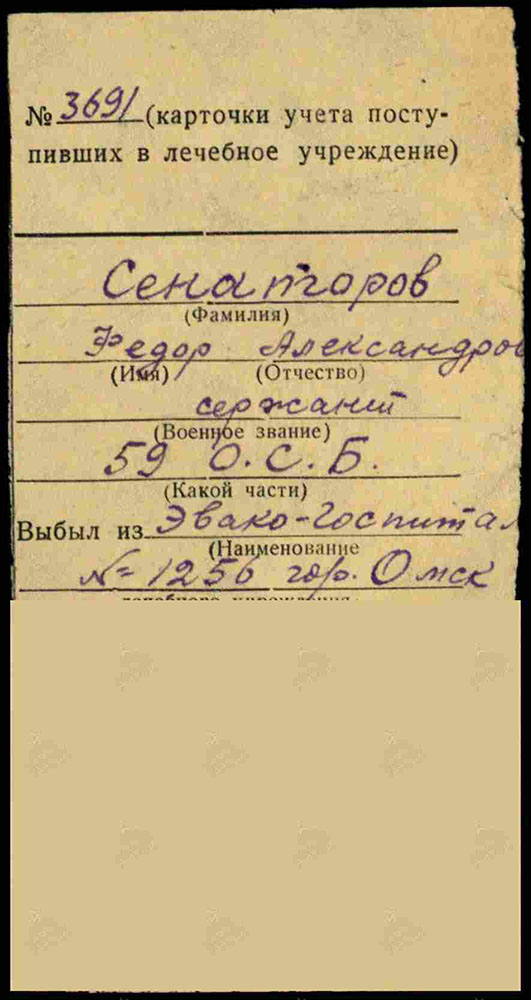 № 3691 (карточки учета посту-
пивших в лечебное учреждение)
Сенаторов
(Фамилия)
Федор Александров
(Имя) (Отчество)
сержант
(Военное звание)
59 О.С.Б.
(Какой части)
Выбыл из Эвако-Госпитал
(Наименование
№ 1256 гор. Омск
лечебного учреждения,